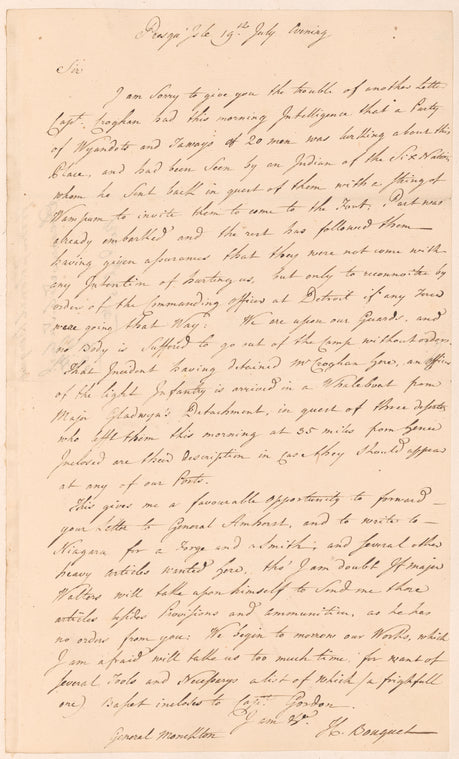 Presqu'Isle 19th July Evening
Sir
I am Sorry to give you the trouble of another Letter
Capt. Croghan had this morning Intelligence that a Party
of Wyandots and Taways of 20 men was lurking about this
Place, and had been Seen by an Indian of the Six Nations
whom he Sent back in quest of them with a String of
Wampum to invite them to come to the Fort; Part was
already embarked and the rest has followed them
having given assurances that they were not come with
any Intention of hurting us, but only to reconnoitre by
order of the Commanding officer at Detroit if any Force
were going that Way: We are upon our Guards, and
no Body is Suffered to go out of the Camp without orders.
That Incident having detained Mr Croghan here, an officer
of the light Infantry is arrived in a Whaleboat from
Major Gladwyn's Detachment, in quest of three deserters
who left them this morning at 35 miles from hence
Inclosed are their Description in Case they Should appear
at any of our Posts.
This gives me a favourable opportunity to forward
your Letter to General Amherst, and to write to
Niagara for a Forge and a Smith; and Several other
heavy articles wanted here, tho' I am doubtfull if major
Walters will take upon himself to Send me those
articles besides Provisions and ammunition, as he has
no orders from you: We begin to morrow our Works, which
I am afraid will take us too much time for want of
Several Tools and Necessarys a list of which (a frightfull
one) Basset incloses to Capt. Gordon.
I am &ca.
General Monckton H. Bouquet